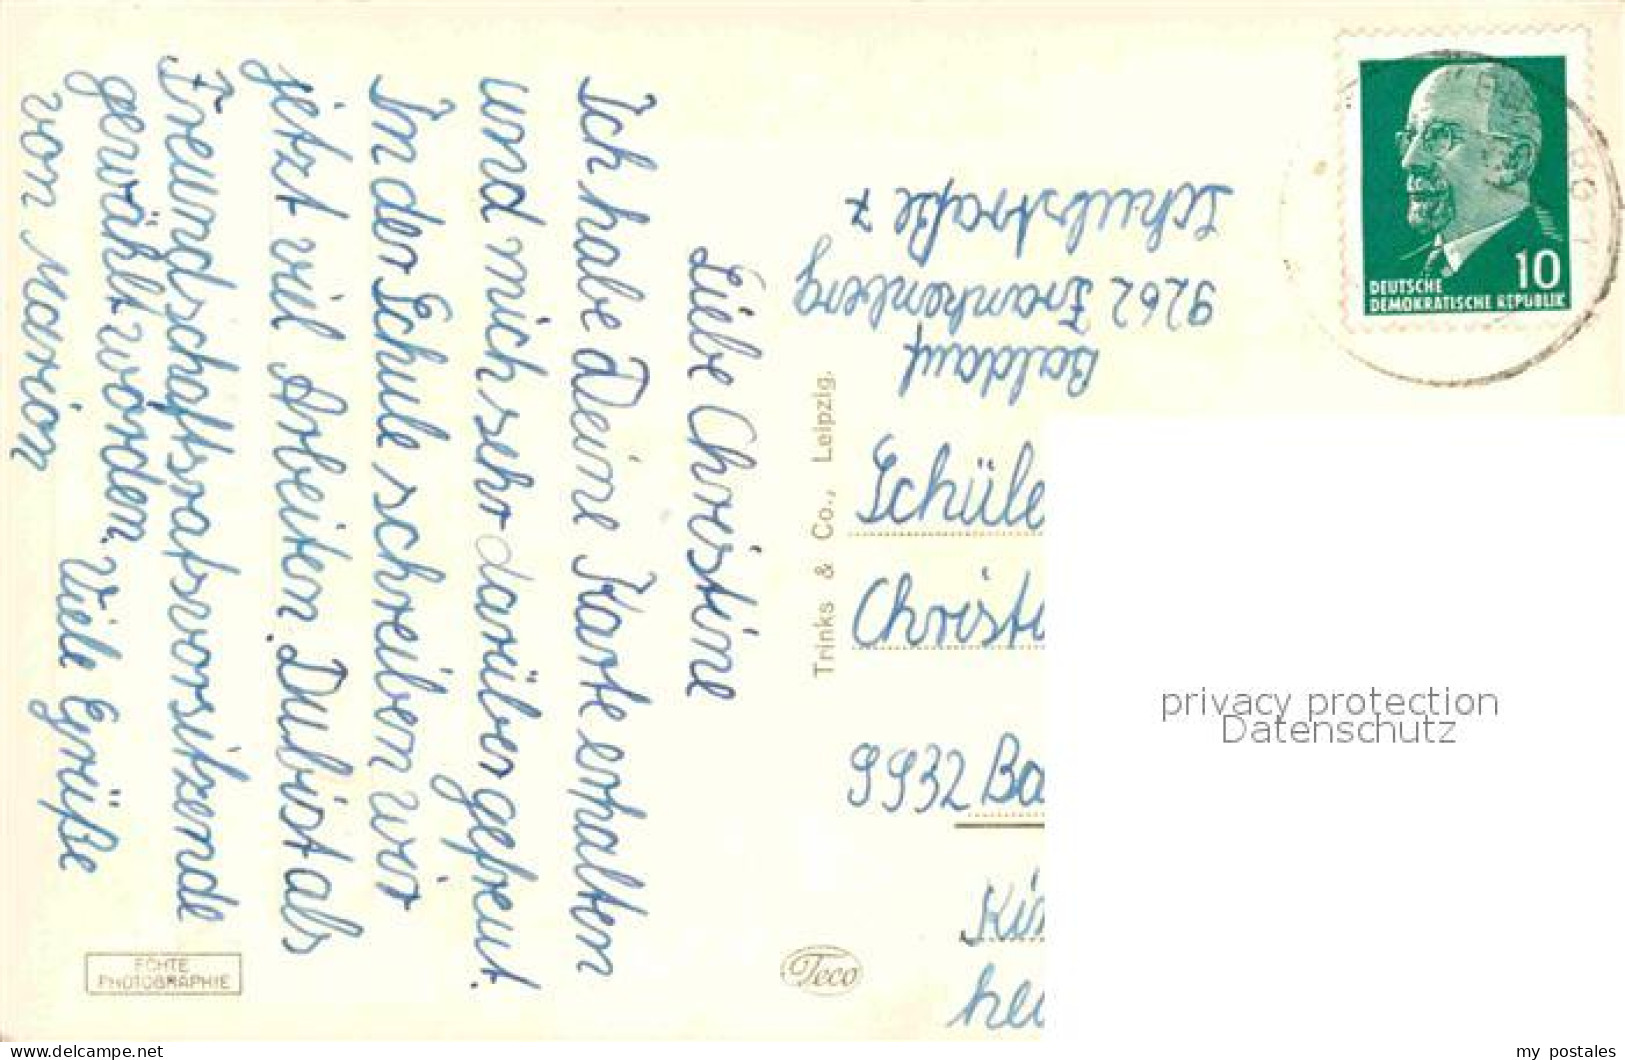 Liebe Christine
Ich habe Deine Karte erhalten
und mich sehr darüber gefreut.
In der Schule schreiben wir
jetzt viel Arbeiten. Du bist als
Freundschaftsratsvorsitzende
gewählt worden. Viele Grüße
von Marion
ECHTE
PHOTOGRAPHIE
Trinks & Co., Leipzig.
Teco
Baldauf
9262 Frankenberg
Schulstraße 7
10
DEUTSCHE
DEMOKRATISCHE REPUBLIK
Schüle
Christi
9932 Ba
Kin
hei
privacy protection
Datenschutz
www.delcampe.net
my_postales